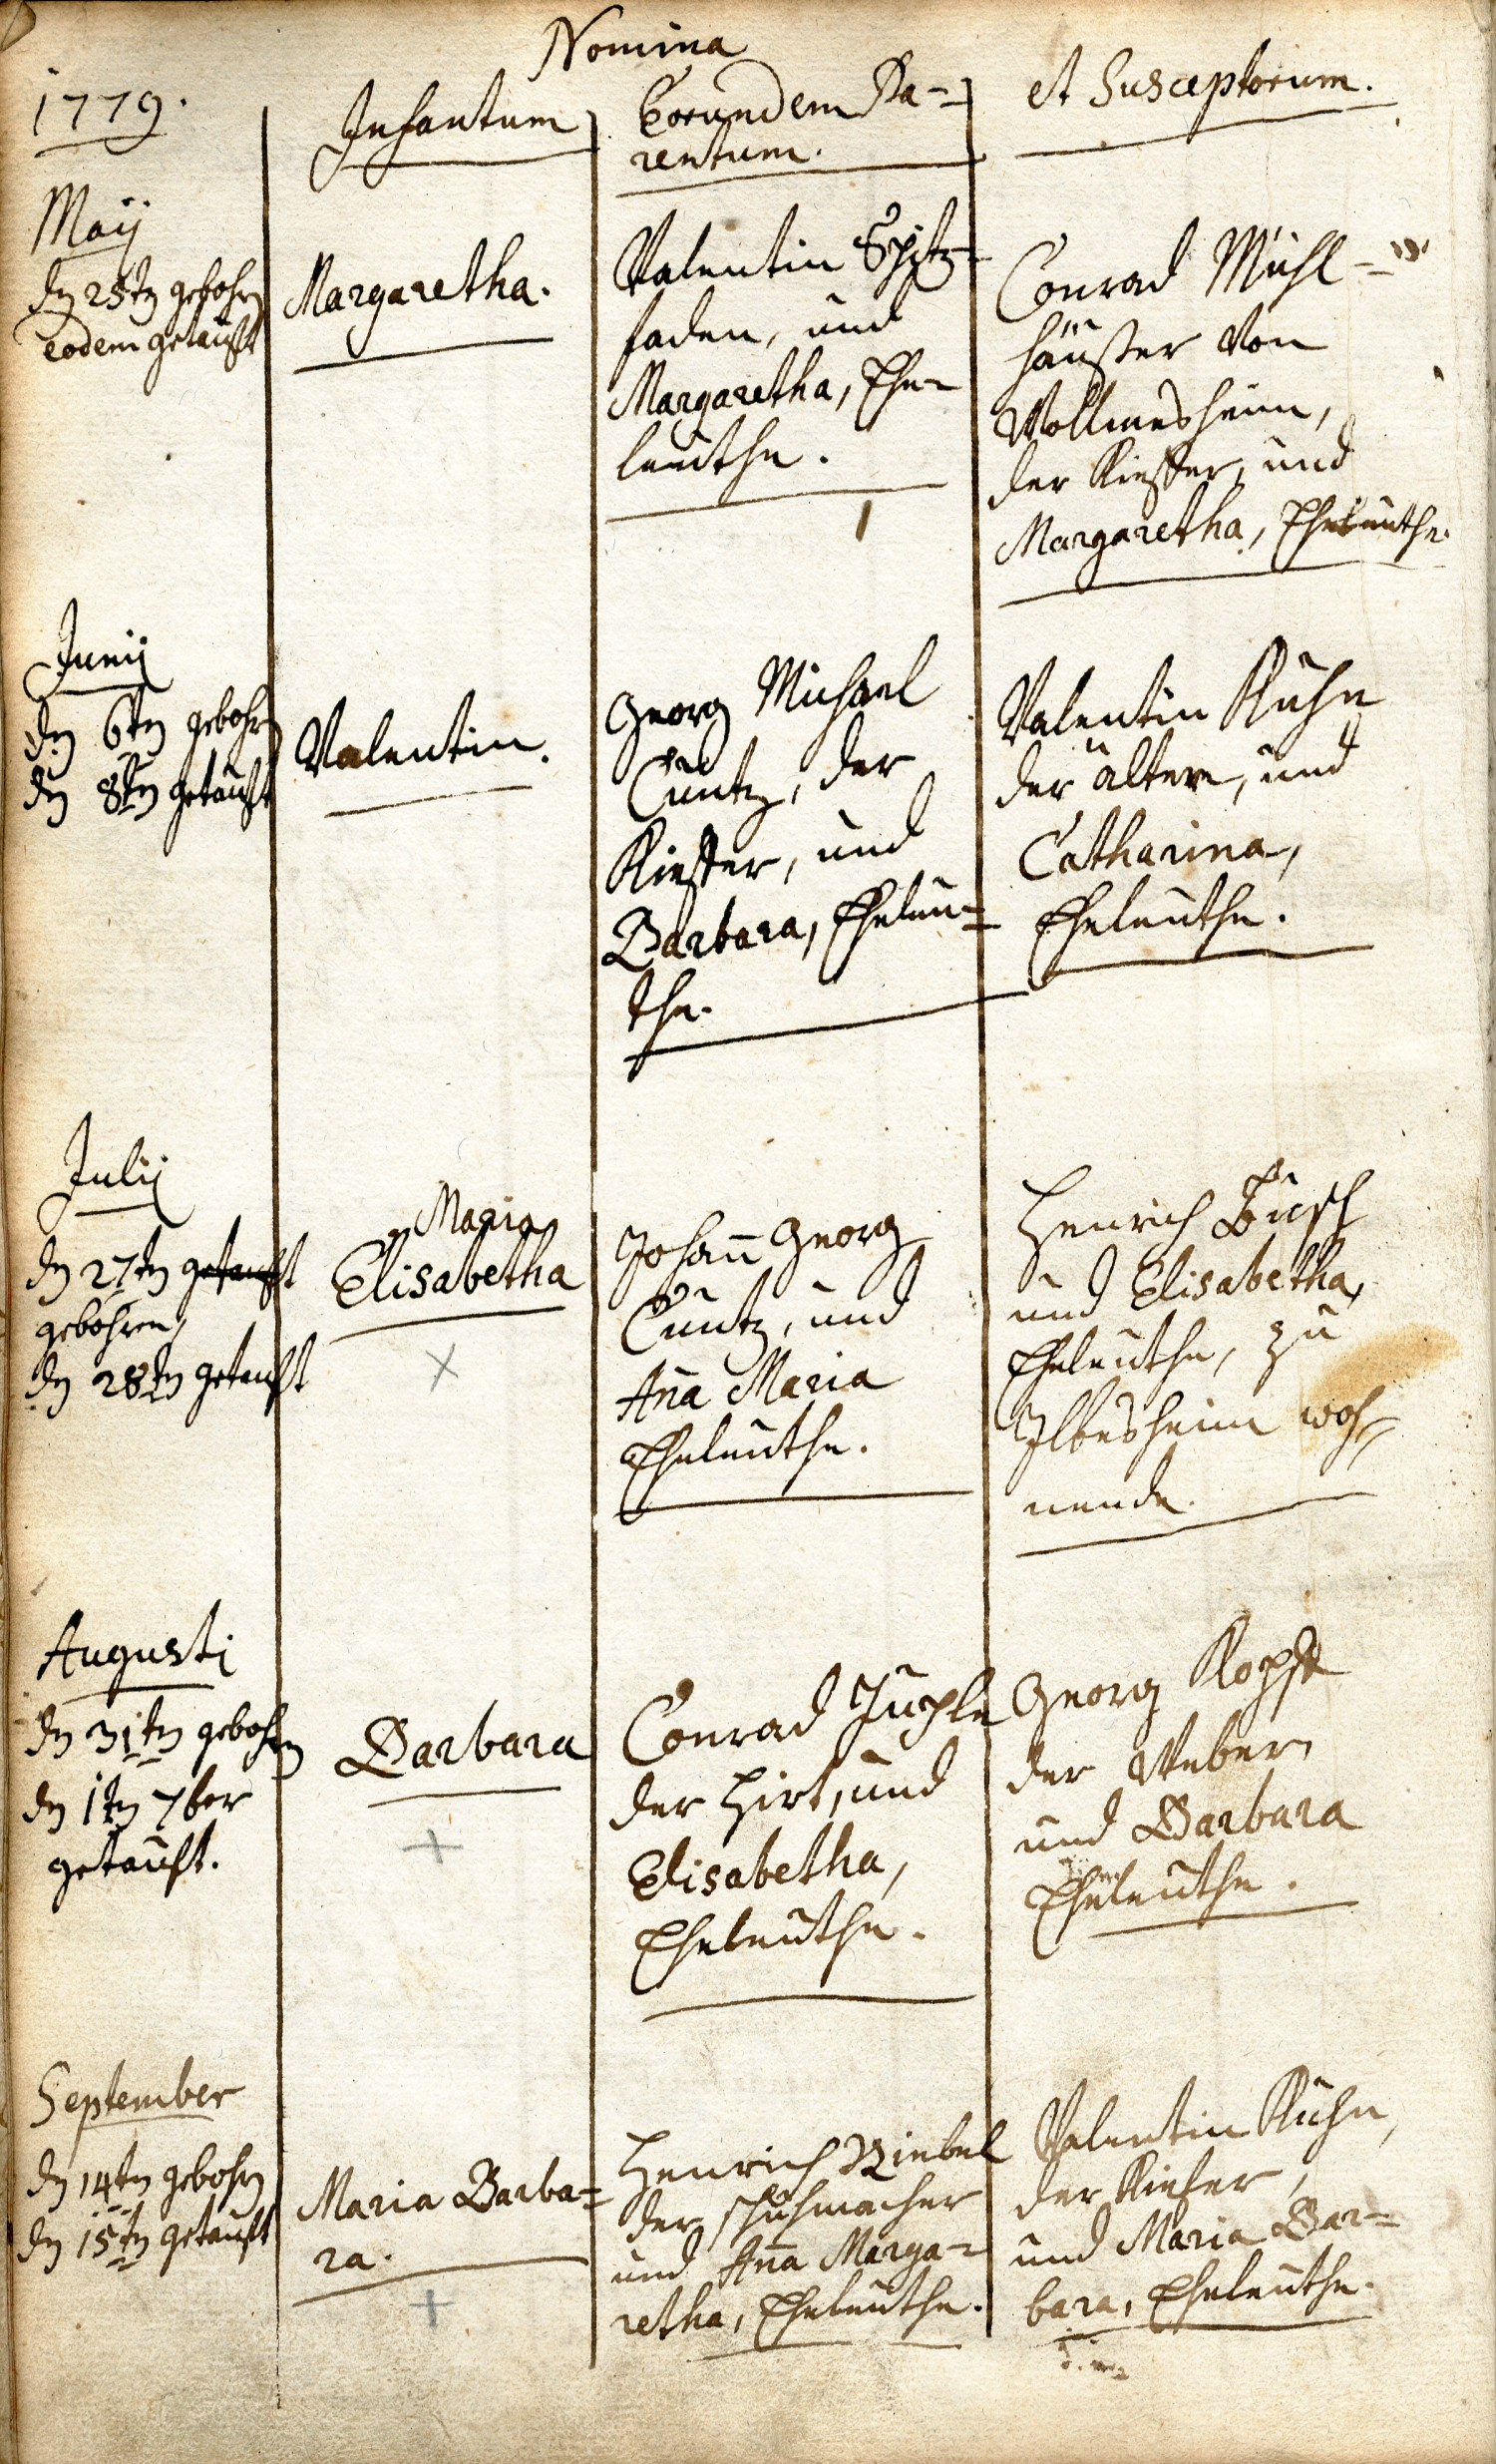 Nomina
1779.
Infantum
Eorundem Pa-
rentum.
et Susceptorum.
Maij
dn 25tn gebohrn
eodem getaufft
Margaretha.
Valentin Spitz-
faden, und
Margaretha, Ehe-
leuthe.
Conrad Mühl-
häußer von
Wollmesheim,
der Kieffer, und
Margaretha, Eheleuthe.
Junij
dn 6tn gebohrn
dn 8tn getaufft
Valentin.
Georg Michael
Cuntz, der
Kieffer, und
Barbara, Eheleu-
the.
Valentin Kuhn
der ältere, und
Catharina,
Eheleuthe.
Julij
dn 27tn getaufft
gebohren,
dn 28tn getaufft
Maria
Elisabetha
Johann Georg
Cuntz, und
Anna Maria
Eheleuthe.
Henrich Busch
und Elisabetha,
Eheleuthe, zu
Ilbesheim woh-
nende.
Augusti
dn 31tn gebohrn
dn 1tn 7ber
getaufft.
Barbara
Conrad
der Hirt, und
Elisabetha,
Eheleuthe.
Georg Kopff
der Weber,
und Barbara
Eheleuthe.
September
dn 14tn gebohrn
dn 15tn getaufft
Maria Barba-
ra.
Henrich Niebel
der schuhmacher
und Anna Marga-
retha, Eheleuthe.
Valentin Kuhn,
der Kiefer,
und Maria Bar-
bara, Eheleuthe.